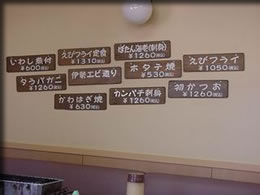 いわし煮付
¥600(税込)
えびフライ定食
¥1310(税込)
ぼたん海老(刺身)
¥1260(税込)
えびフライ
¥1050(税込)
タラバガニ
¥1260(税込)
伊勢エビ造り
ホタテ焼
¥530(税込)
かわはぎ焼
¥630(税込)
カンパチ刺身
¥1260(税込)
初かつお
¥1260(税込)